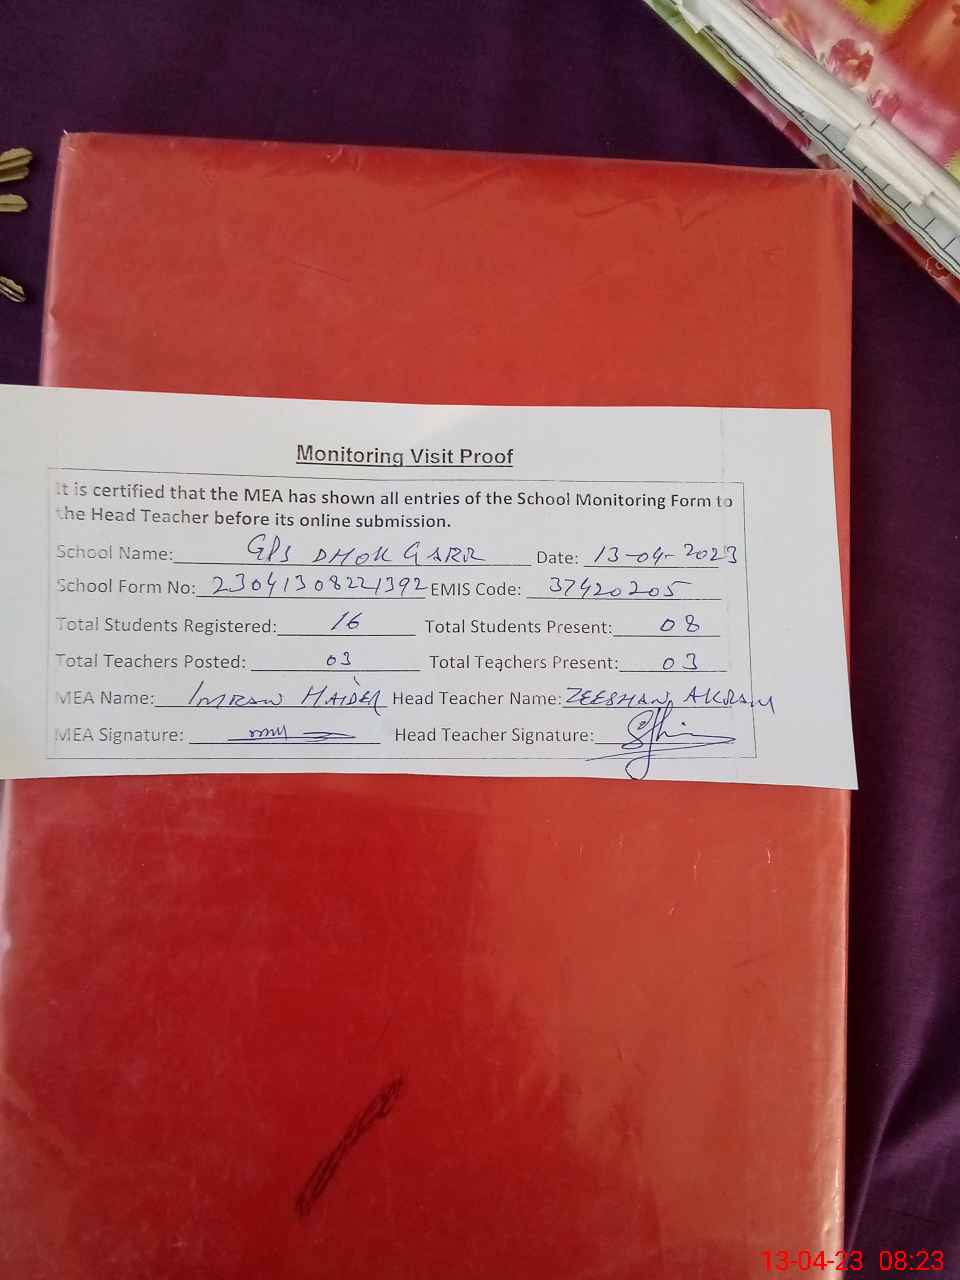 Monitoring Visit Proof
It is certified that the MEA has shown all entries of the School Monitoring Form to
the Head Teacher before its online submission.
School Name: GPS DHOK GARR Date: 13-04-2023
School Form No: 23041308221392 EMIS Code: 37420205
Total Students Registered: 16 Total Students Present: 08
Total Teachers Posted: 03 Total Teachers Present: 03
MEA Name: IMRAN HAIDER Head Teacher Name: ZEESHAN AKRAM
MEA Signature: Head Teacher Signature:
13-04-23 08:23